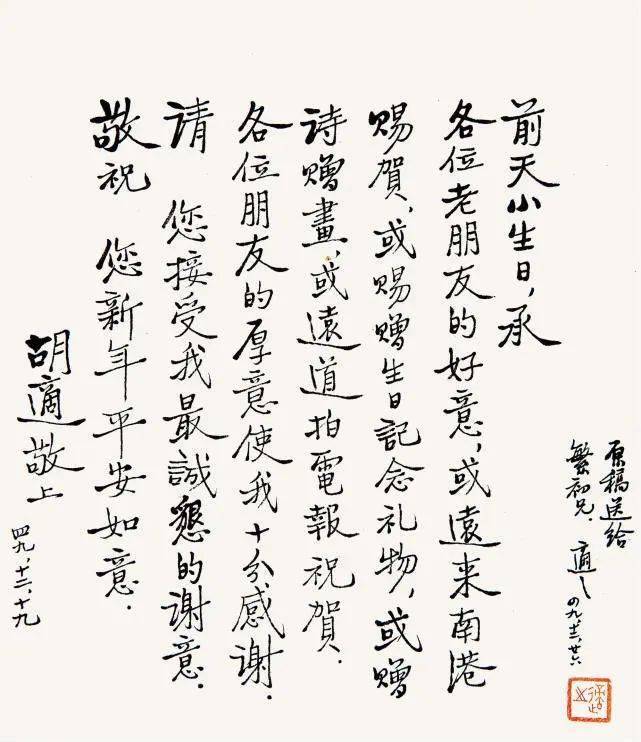 前天小生日，承
各位老朋友的好意，或遠来南港
賜賀，或賜贈生日記念礼物，或贈
诗贈畫，或遠道拍電報祝賀．
各位朋友的厚意使我十分感谢．
请　您接受我最誠懇的谢意．
敬祝　您新年平安如意．
胡適敬上
四九．十二．十九
原稿送给
繁初兄．適之
四九．十二．廿六